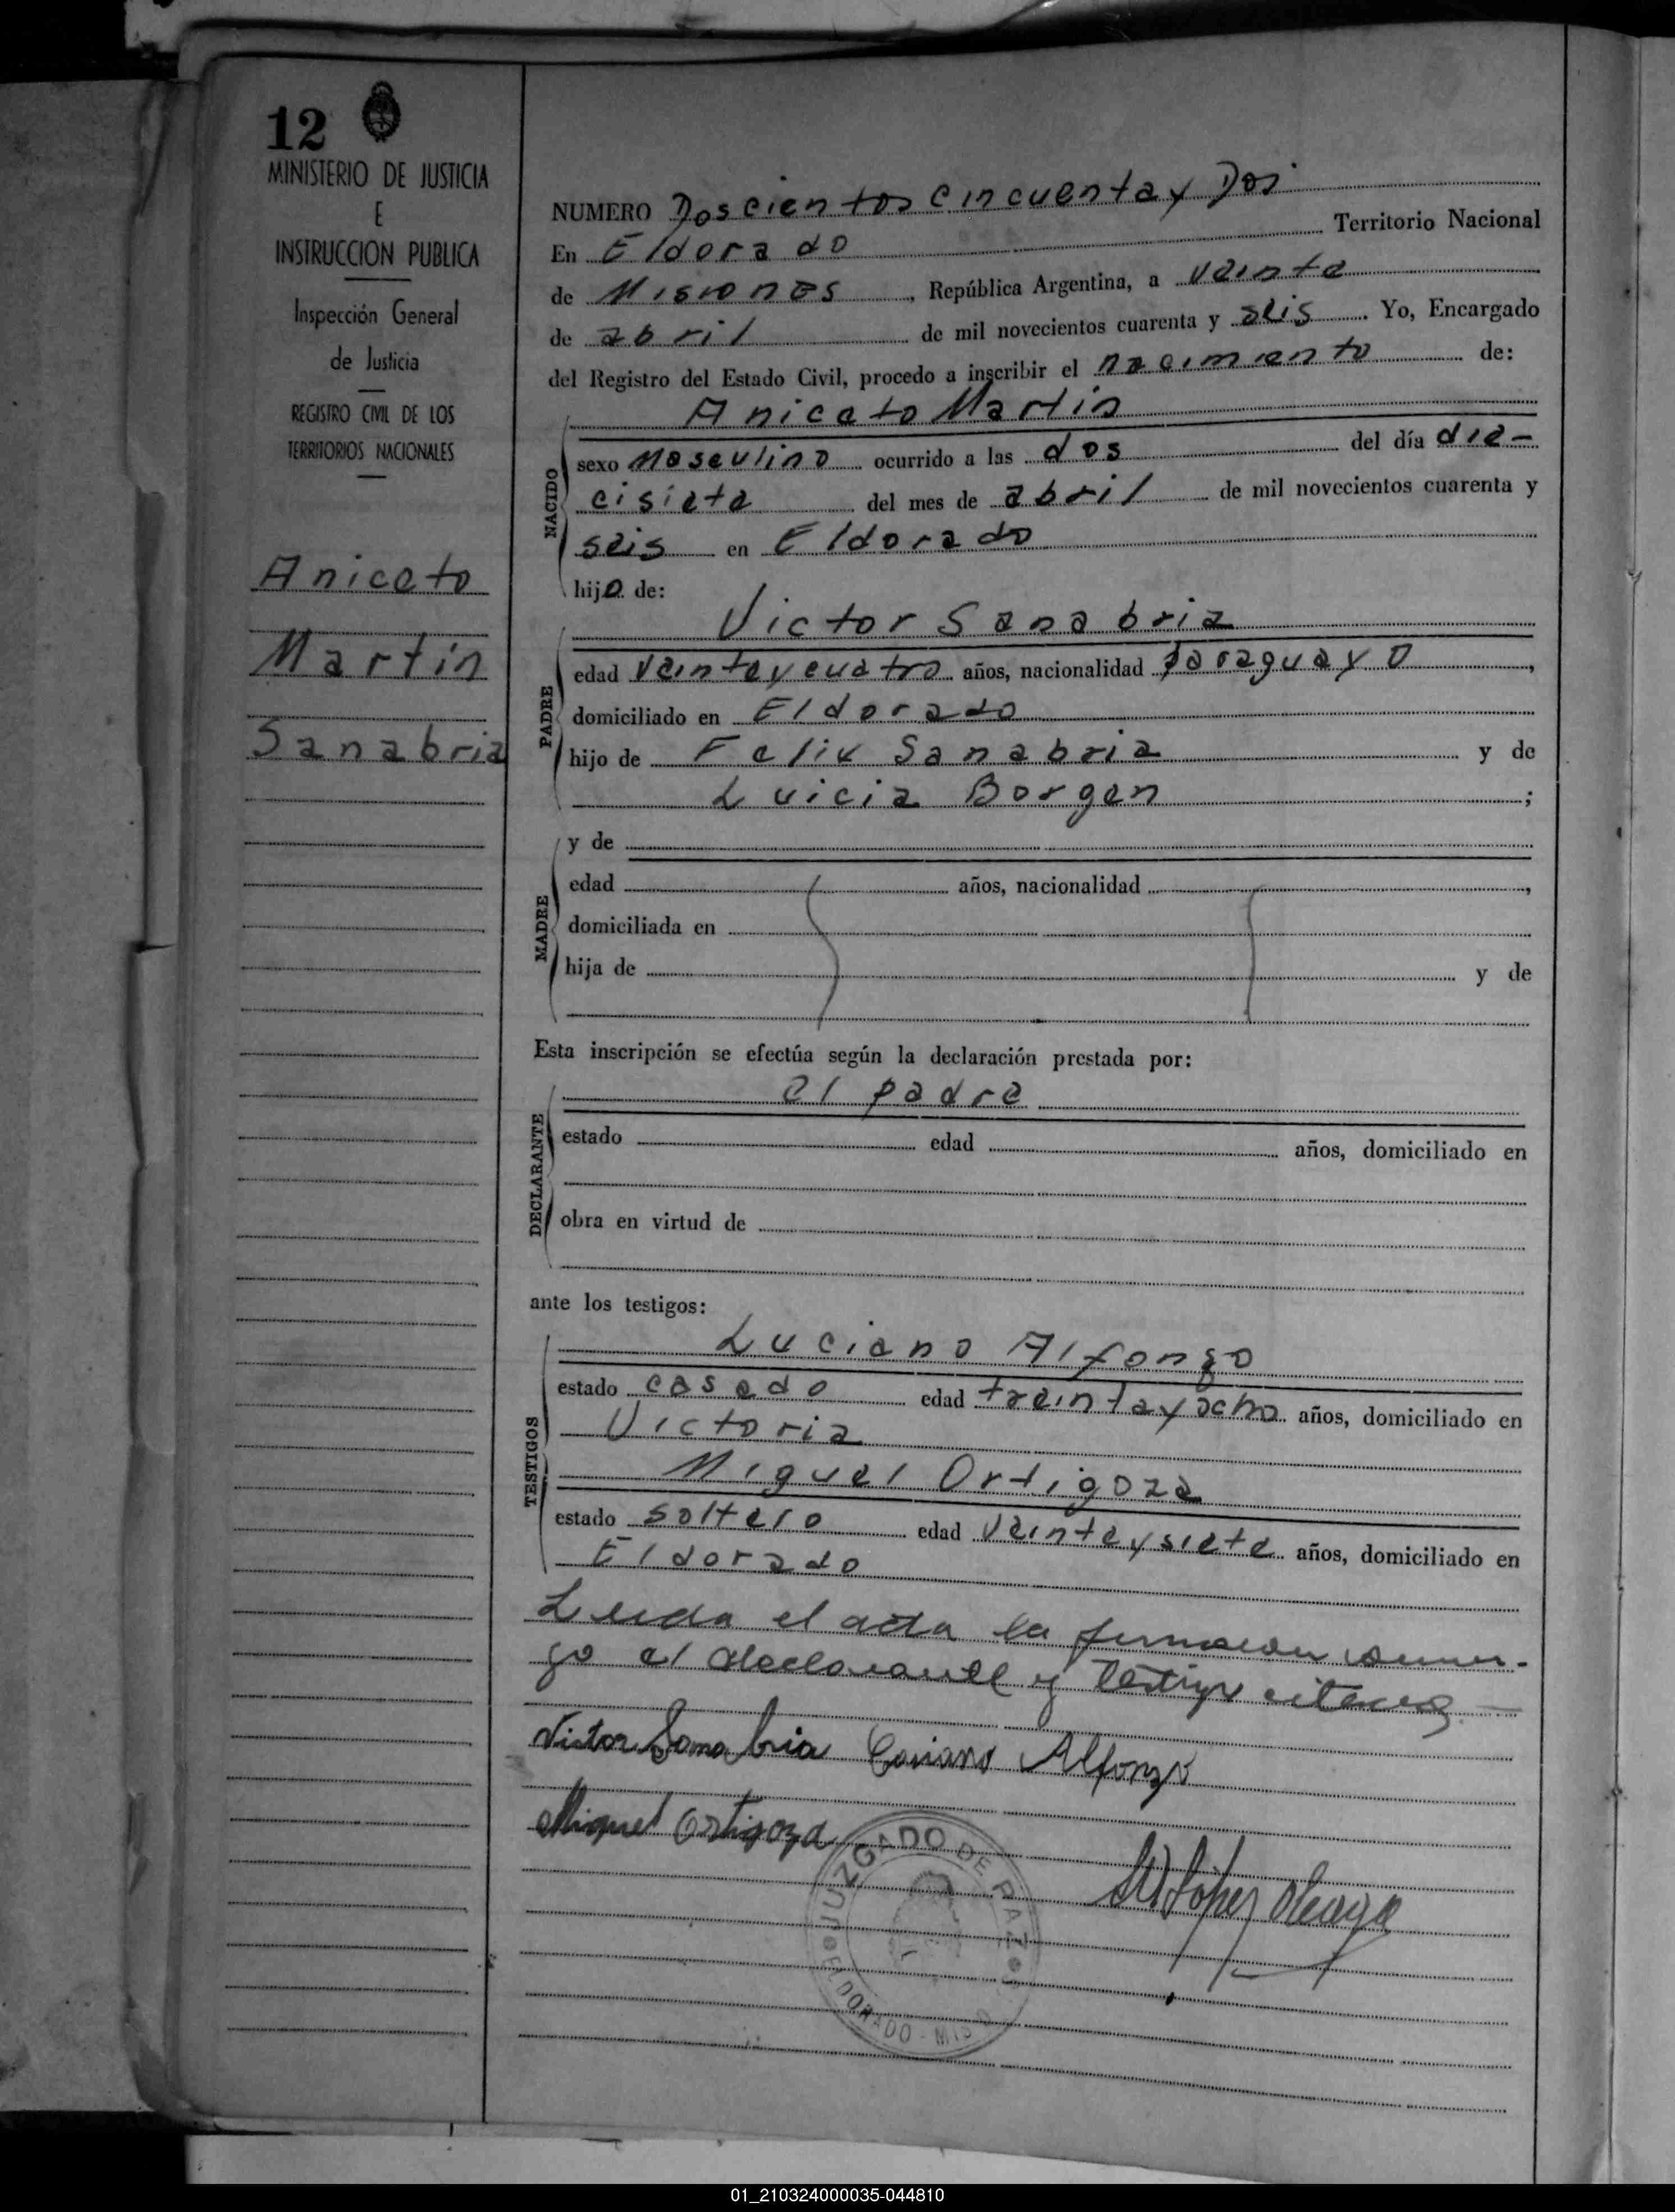 12
MINISTERIO DE JUSTICIA
E
INSTRUCCION PUBLICA
Inspección General
de Justicia
REGISTRO CIVIL DE LOS
TERRITORIOS NACIONALES
Aniceto
Martin
Sanabria
NUMERO Doscientos cincuenta y Dos
En Eldorado Territorio Nacional
de Misiones, República Argentina, a veinte
de abril de mil novecientos cuarenta y seis. Yo, Encargado
del Registro del Estado Civil, procedo a inscribir el nacimiento de:
Aniceto Martin
NACIDO
sexo Masculino ocurrido a las dos del día die-
cisiete del mes de abril de mil novecientos cuarenta y
seis en Eldorado
hijo de:
Victor Sanabria
PADRE
edad veinte y cuatro años, nacionalidad paraguayo,
domiciliado en Eldorado
hijo de Felix Sanabria y de
Luicia Borgen;
MADRE
y de
edad años, nacionalidad ,
domiciliada en
hija de y de
Esta inscripción se efectúa según la declaración prestada por:
el padre
DECLARANTE
estado edad años, domiciliado en
obra en virtud de
ante los testigos:
Luciano Alfonzo
TESTIGOS
estado casado edad treinta y ocho años, domiciliado en
Victoria
Miguel Ortigoza
estado soltero edad veinte y siete años, domiciliado en
Eldorado
Leida el acta la firmaron conmi-
go el declarante y testigos citados
Victor Sanabria Alfonzo
Miguel Ortigoza
López
JUZGADO DE PAZ
ELDORADO - MIS
01_210324000035-044810